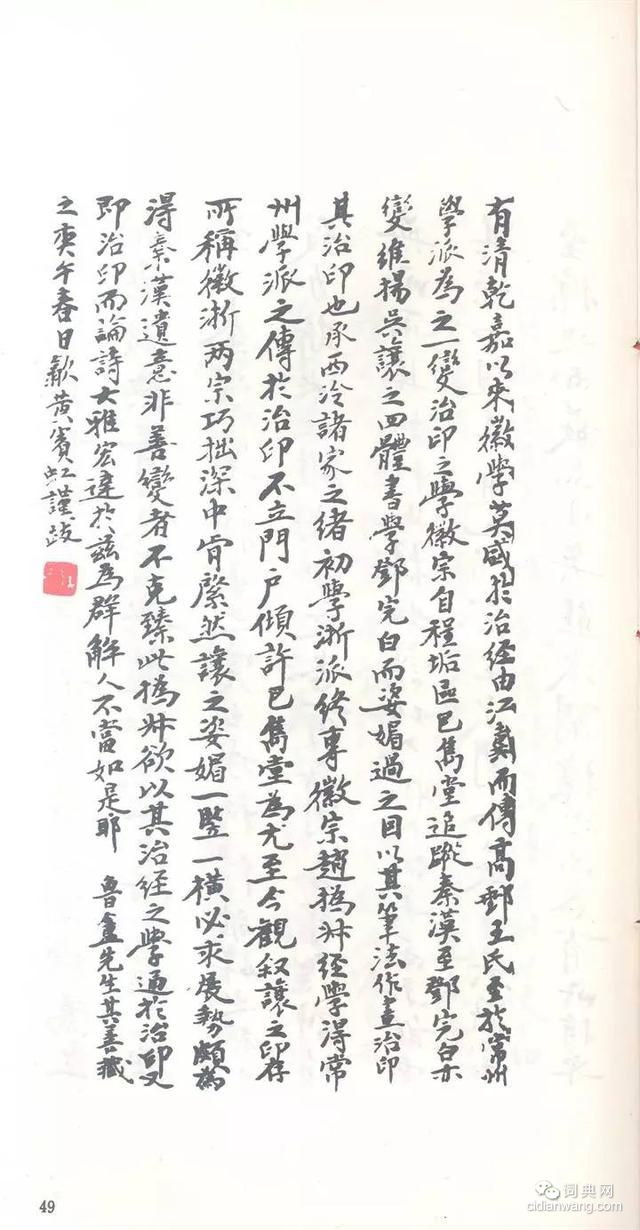 有清乾嘉以來徽學莫盛於治經由江戴而傳高郵王氏至於常州
學派為之一變治印之學徽宗自程垢區巴雋堂追蹤秦漢至鄧完白亦
變維揚吳讓之四體書學鄧完白而姿媚過之因以其筆法作畫治印
其治印也承西泠諸家之緒初學浙派終專徽宗趙撝叔經學得常
州學派之傳於治印不立門戶傾許巴雋堂為尤至今觀叙讓之印存
所稱徽浙兩宗巧拙深中肯綮然讓之姿媚一豎一橫必求展勢頗為
得秦漢遺意非善變者不克臻此撝叔欲以其治經之學通於治印又
即治印而論詩大雅宏達於茲為群解人不當如是耶 魯盦先生其善藏
之庚午春日歙黃賓虹謹跋
49
词典网
cidianwang.com